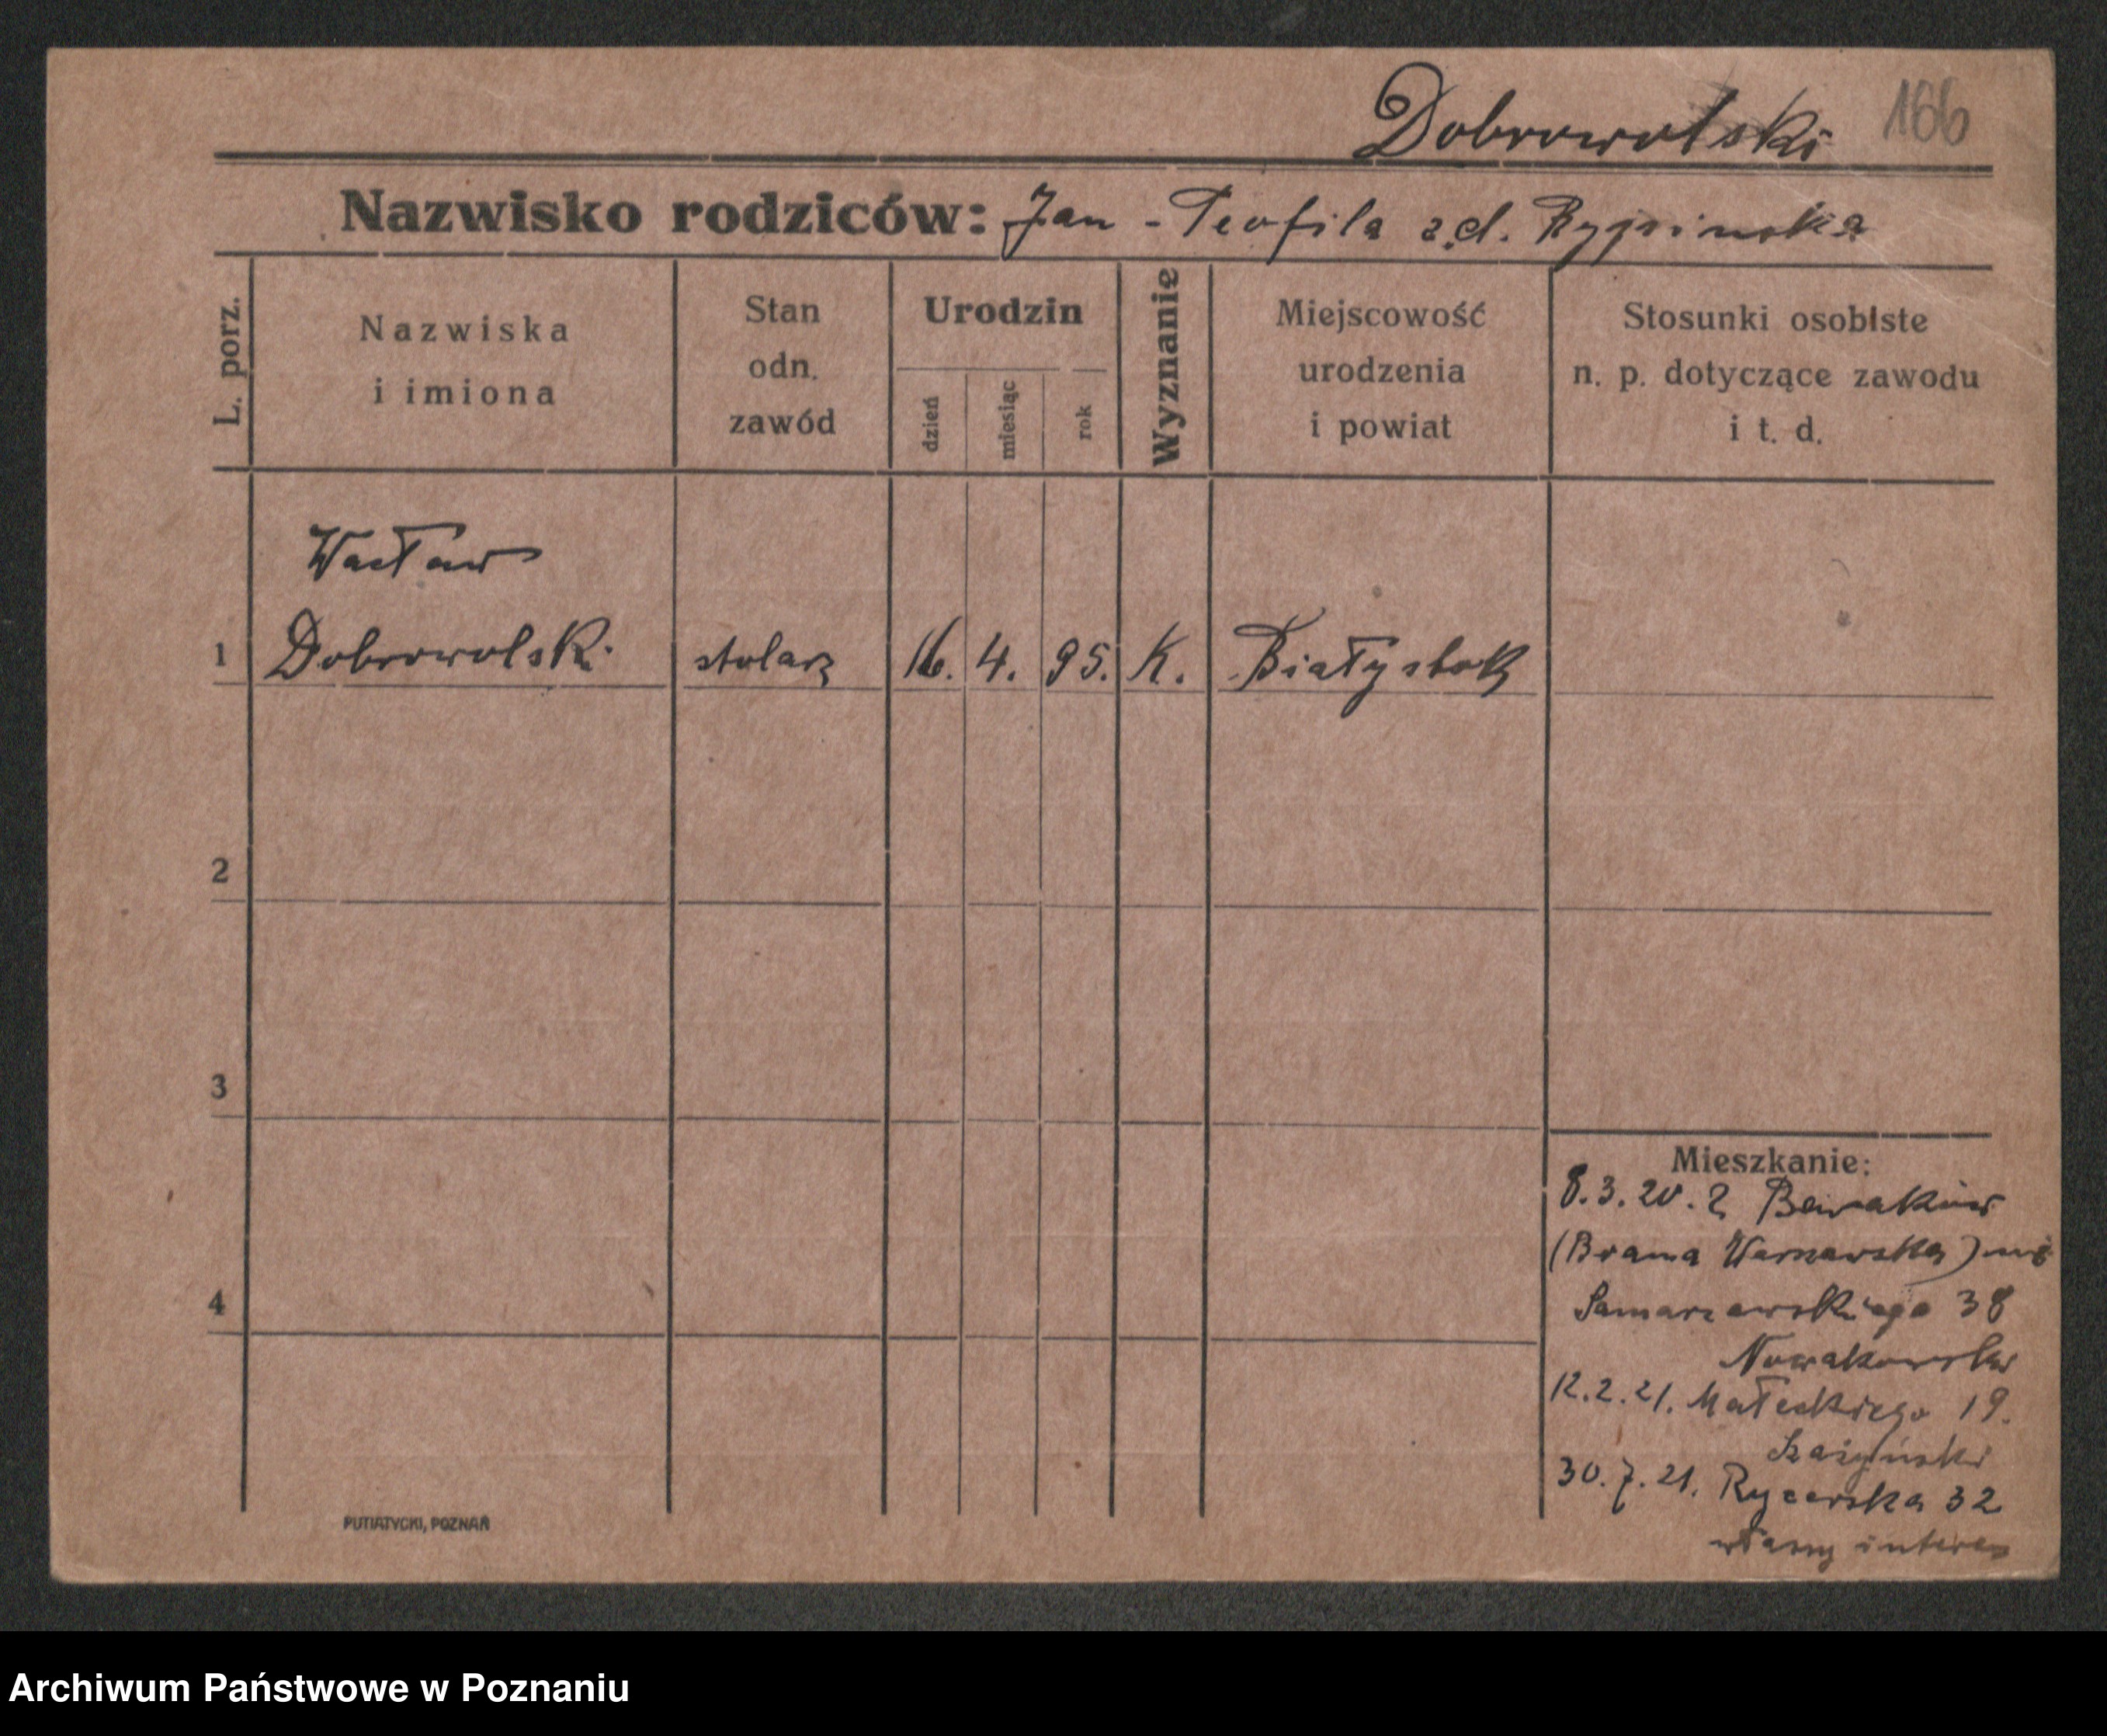 Dobrowolski 166
Nazwisko rodziców: Jan - Teofila z.d. Rypińska
L. porz.
Nazwiska
i imiona
Stan
odn.
zawód
Urodzin
dzień
miesiąc
rok
Wyznanie
Miejscowość
urodzenia
i powiat
Stosunki osobiste
n. p. dotyczące zawodu
i t. d.
Wacław
1 Dobrowolski stolarz 16. 4. 95. K. Białystok
2
3
4
Mieszkanie:
8.3.20. z Baraków
(Brama Warszawska)
Samarzewskiego 38
12.2.21. Małeckiego 19.
30.7.21. Rycerska 32
własny interes
PUTIATYCKI, POZNAŃ
Archiwum Państwowe w Poznaniu